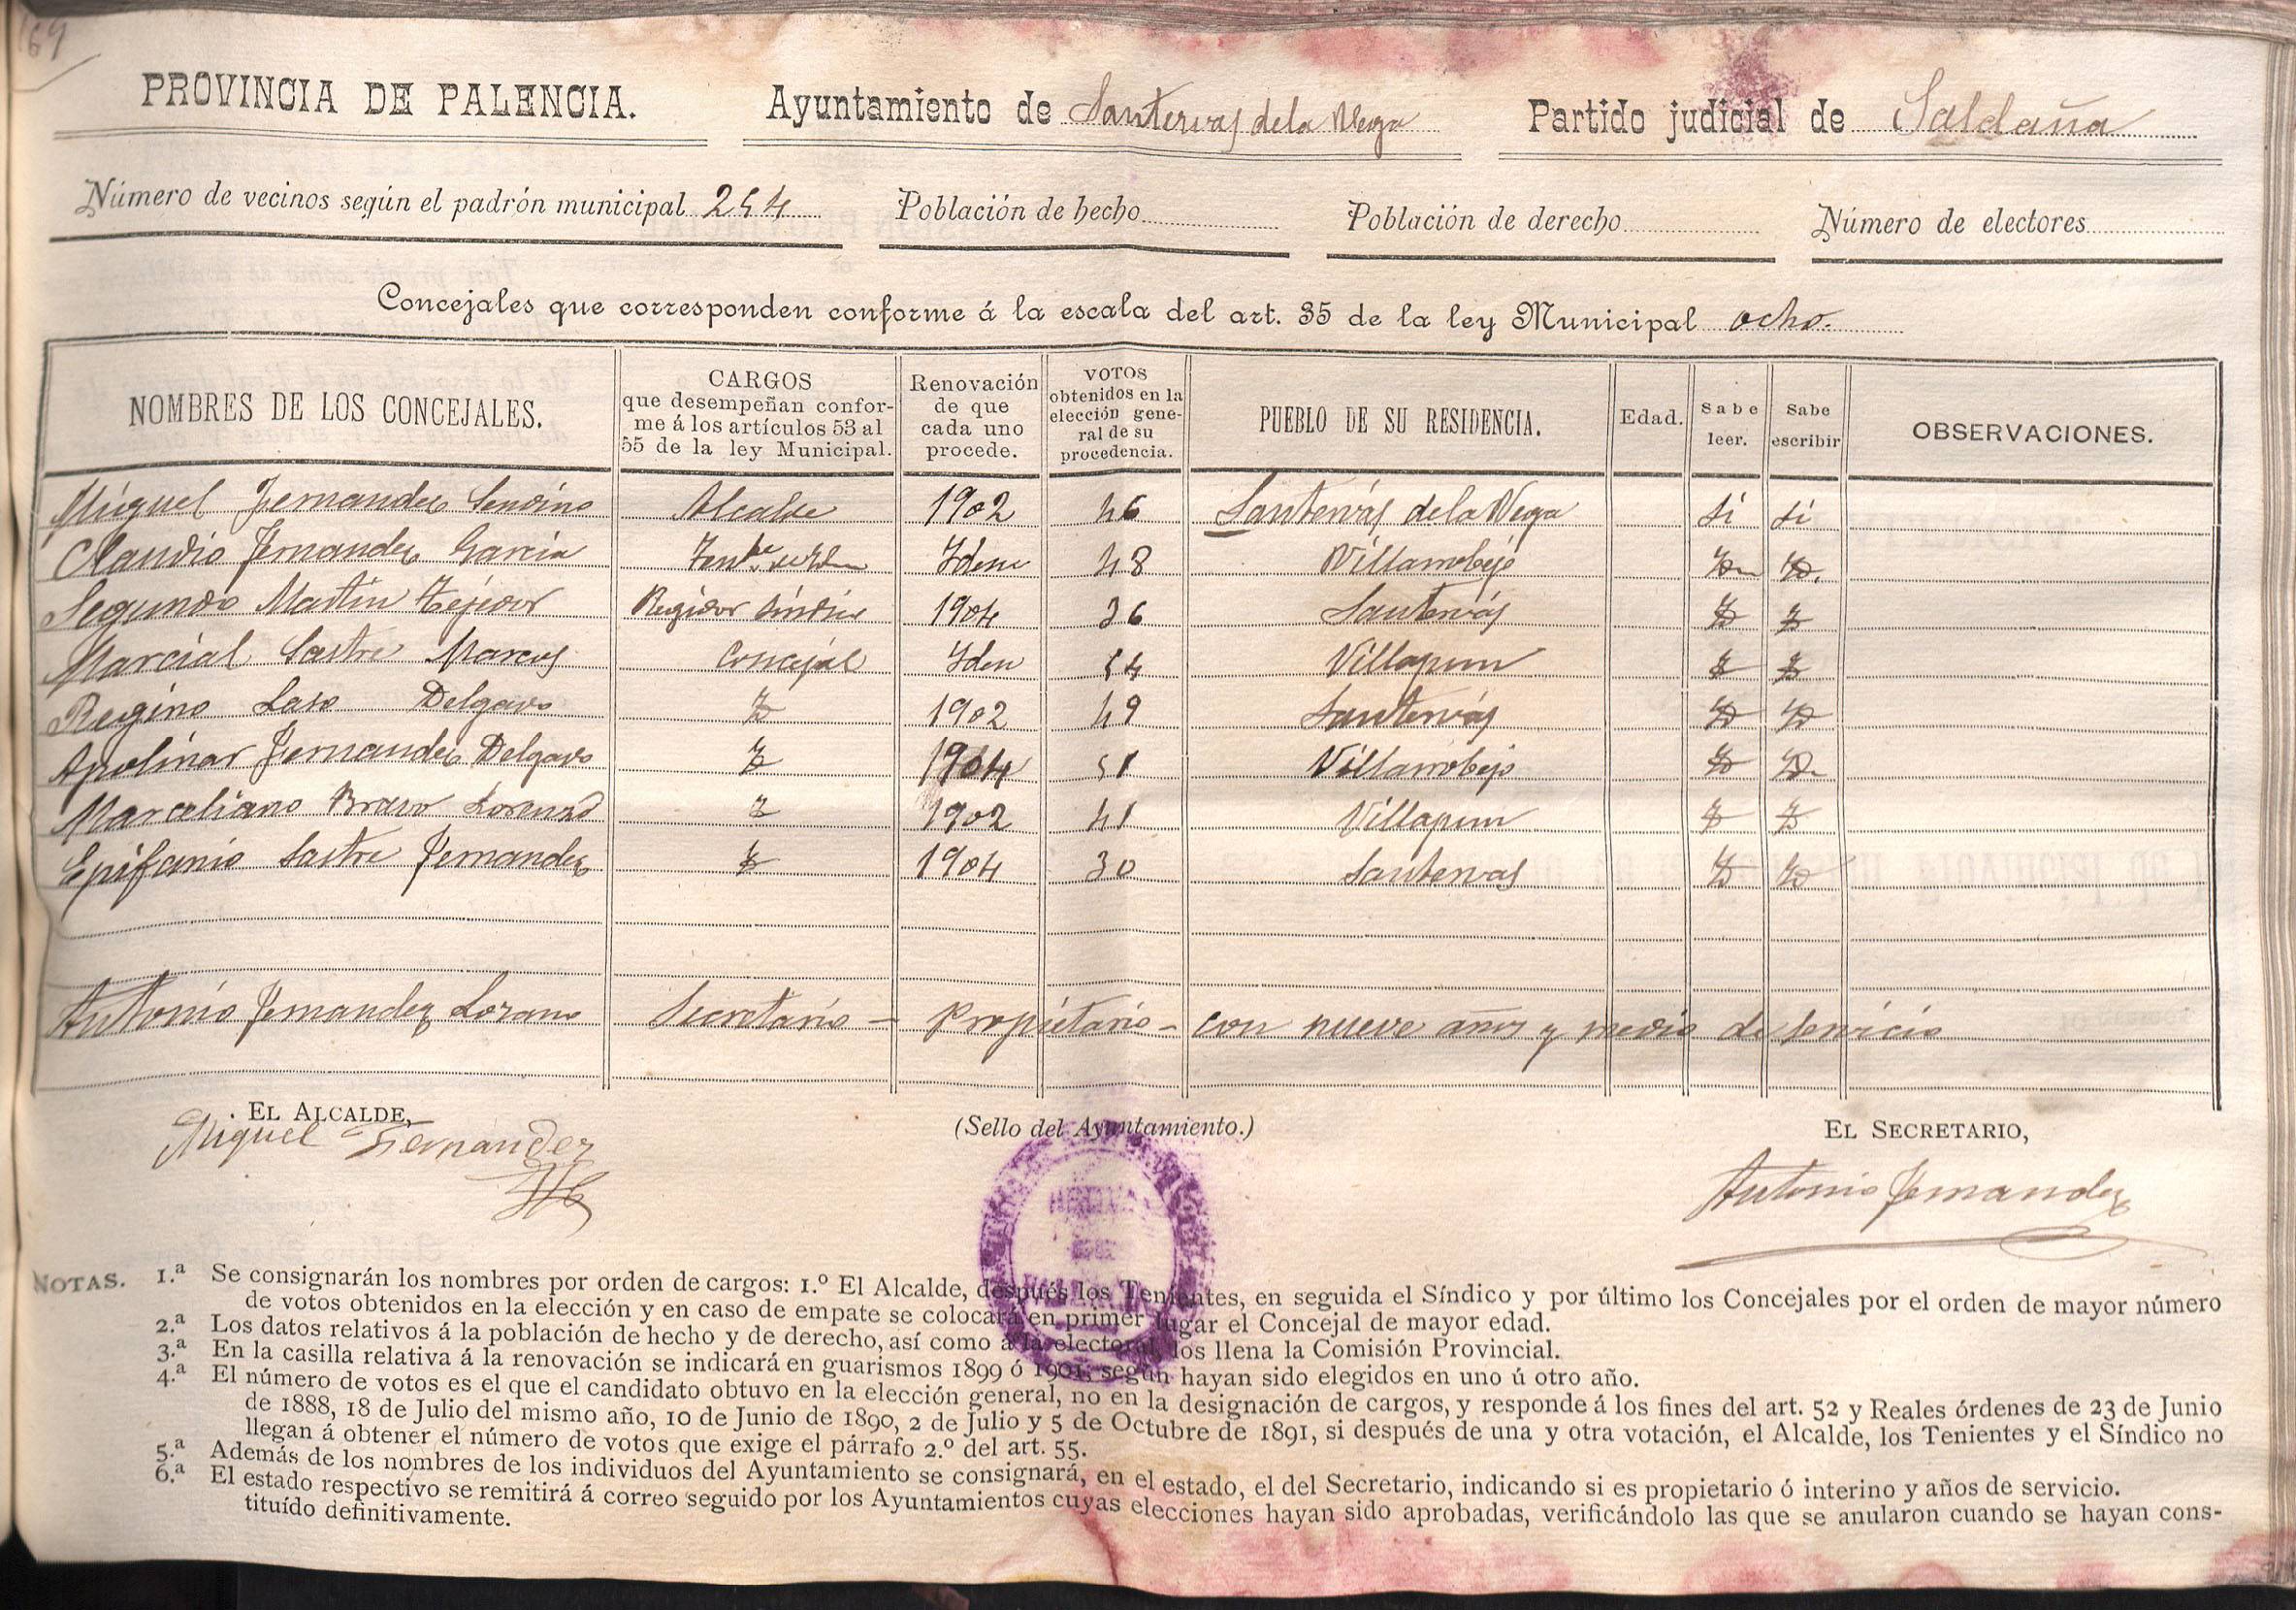 169
PROVINCIA DE PALENCIA. Ayuntamiento de Santervas de la Vega Partido judicial de Saldaña
Número de vecinos según el padrón municipal 254 Población de hecho Población de derecho Número de electores
Concejales que corresponden conforme á la escala del art. 35 de la ley Municipal ocho.
NOMBRES DE LOS CONCEJALES. CARGOS que desempeñan conforme á los artículos 53 al 55 de la ley Municipal. Renovación de que cada uno procede. VOTOS obtenidos en la elección general de su procedencia. PUEBLO DE SU RESIDENCIA. Edad. Sabe leer. Sabe escribir OBSERVACIONES.
Miguel Fernandez Sendino Alcalde 1902 46 Santervás de la Vega si si
Claudio Fernandez Garcia Tente. 1902 Idem 48 Villarrobejo Id. Id.
Segundo Martin Tejedor Regidor Síndico 1904 36 Santervás Id Id
Marcial Sastre Marcos Concejal Idem 54 Villapun Id Id
Regino Laso Delgado Id 1902 49 Santervás Id Id
Apolinar Fernandez Delgado Id 1904 51 Villarrobejo Id Id
Marceliano Bravo Lorenzo Id 1902 41 Villapun Id Id
Epifanio Sastre Fernandez Id 1904 30 Santervas Id Id
Antonio Fernandez Lozano Secretario - Propietario - con nueve años y medio de servicio
EL ALCALDE, (Sello del Ayuntamiento.) EL SECRETARIO,
Miguel Fernandez Antonio Fernandez
NOTAS. 1.ª Se consignarán los nombres por orden de cargos: 1.º El Alcalde, después los Tenientes, en seguida el Síndico y por último los Concejales por el orden de mayor número
de votos obtenidos en la elección y en caso de empate se colocará en primer lugar el Concejal de mayor edad.
2.ª Los datos relativos á la población de hecho y de derecho, así como á la electoral, los llena la Comisión Provincial.
3.ª En la casilla relativa á la renovación se indicará en guarismos 1899 ó 1901, según hayan sido elegidos en uno ú otro año.
4.ª El número de votos es el que el candidato obtuvo en la elección general, no en la designación de cargos, y responde á los fines del art. 52 y Reales órdenes de 23 de Junio
de 1888, 18 de Julio del mismo año, 10 de Junio de 1890, 2 de Julio y 5 de Octubre de 1891, si después de una y otra votación, el Alcalde, los Tenientes y el Síndico no
llegan á obtener el número de votos que exige el párrafo 2.º del art. 55.
5.ª Además de los nombres de los individuos del Ayuntamiento se consignará, en el estado, el del Secretario, indicando si es propietario ó interino y años de servicio.
6.ª El estado respectivo se remitirá á correo seguido por los Ayuntamientos cuyas elecciones hayan sido aprobadas, verificándolo las que se anularon cuando se hayan cons-
tituído definitivamente.